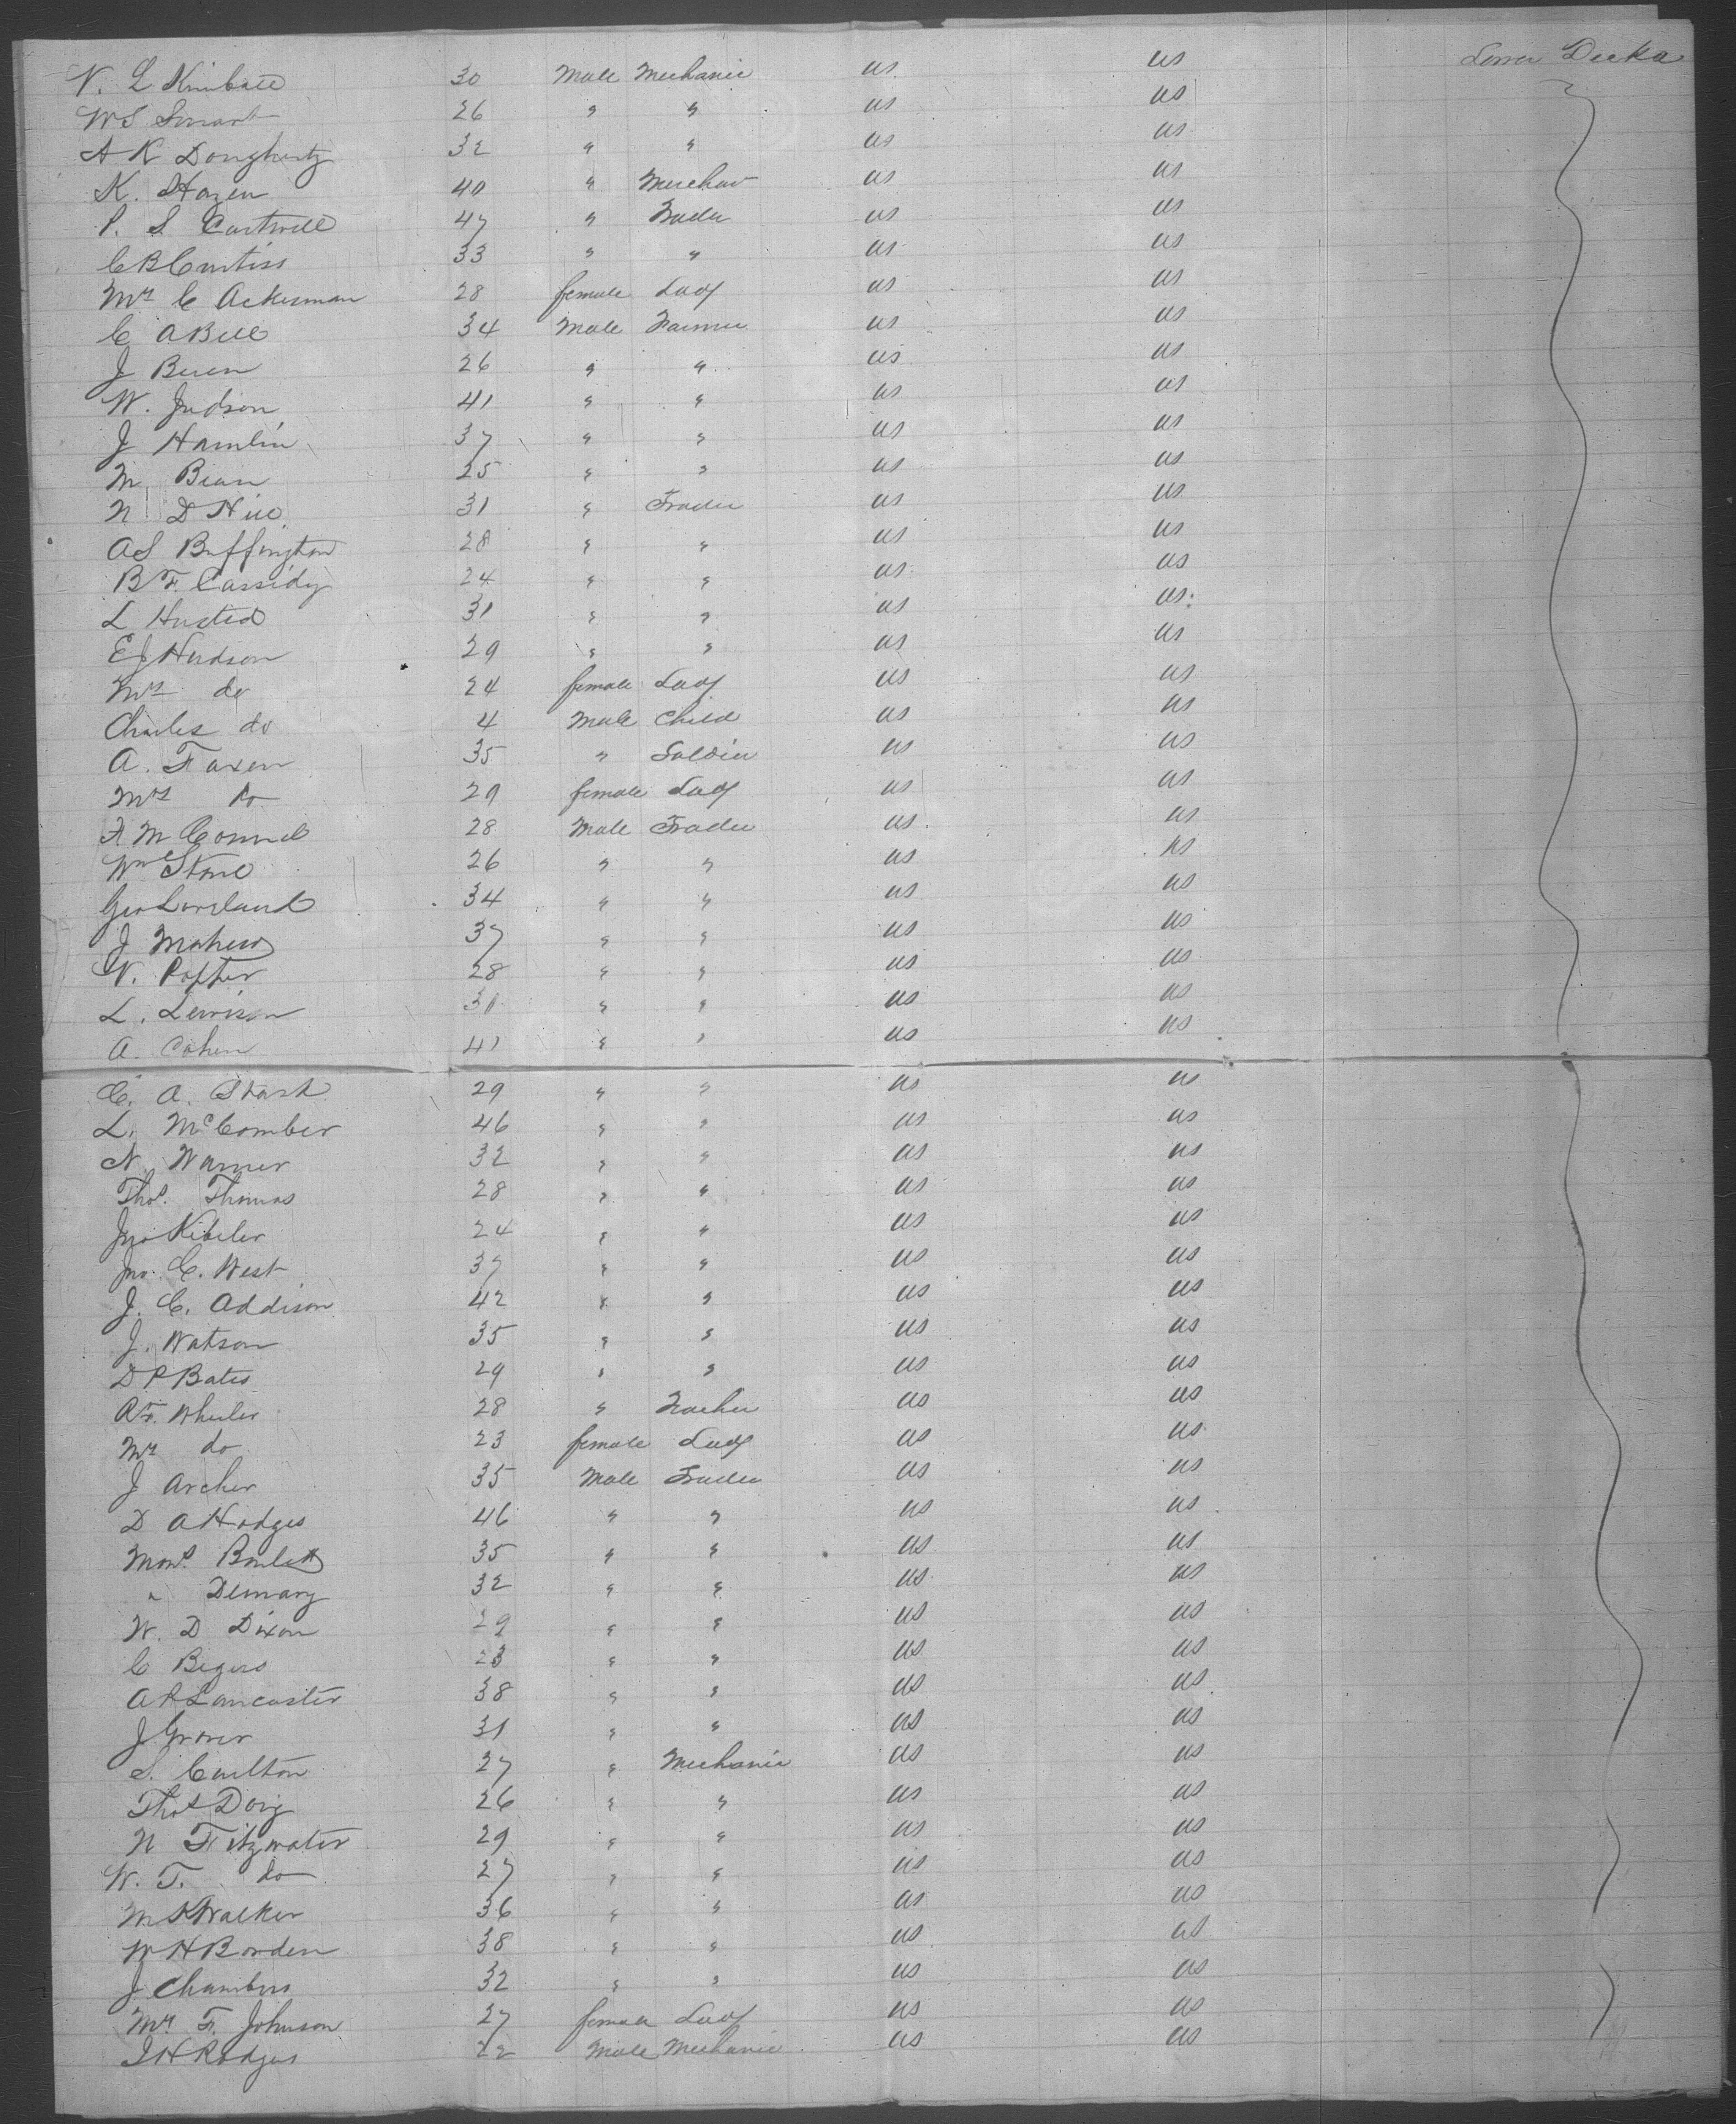 N. L Kimball 30 Male Mechanic US US Lower Decka
WS Smart 26 " " US US
A K Dougherty 32 " " US US
K. Hazen 40 " Merchan US US
P. S. Cartwell 47 " Trader US US
C B Curtiss 33 " " US US
Mrs C Ackerman 28 female Lady US US
C A Bell 34 Male Farmer US US
J 26 " " US US
W. Judson 41 " " US US
J Hamlin 37 " " US US
M 25 " " US US
N D Hill 31 " Trader US US
AS Buffington 28 " " US US
B F. Cassidy 24 " " US US
L Husted 31 " " US US
E J Hudson 29 " " US US
Mrs do 24 female Lady US US
Charles do 4 Male Child US US
A. Faxen 35 " Soldier US US
Mrs do 29 female Lady US US
F M Connel 28 Male Trader US US
Wm Stone 26 " " US US
Geo Loveland 34 " " US US
J Mathews 37 " " US US
N. Popper 28 " " US US
L. Levison 31 " " US US
A. Cohen 41 " " US US
C. A. Stark 29 " " US US
L. McComber 46 " " US US
N. Warner 32 " " US US
Thos. Thomas 28 " " US US
Jno Kibeler 24 " " US US
Jno. C. West 37 " " US US
J. C. Addison 42 " " US US
J. Watson 35 " " US US
D P Bates 29 " " US US
A F. Wheeler 28 " Teacher US US
Mrs do 23 female Lady US US
J Archer 35 Male Trader US US
D A Hodges 46 " " US US
Mons. 35 " " US US
" Demary 32 " " US US
W. D Dixon 29 " " US US
C 23 " " US US
A R Lancaster 38 " " US US
J Grover 31 " " US US
S. Carlton 27 " Mechanic US US
Thos Doig 26 " " US US
N Fitzwater 29 " " US US
W. T. do 27 " " US US
M S Walker 36 " " US US
W H Borden 38 " " US US
J Chambers 32 " " US US
Mrs F. Johnson 27 female Lady US US
J H Rodgers 22 Male Mechanic US US